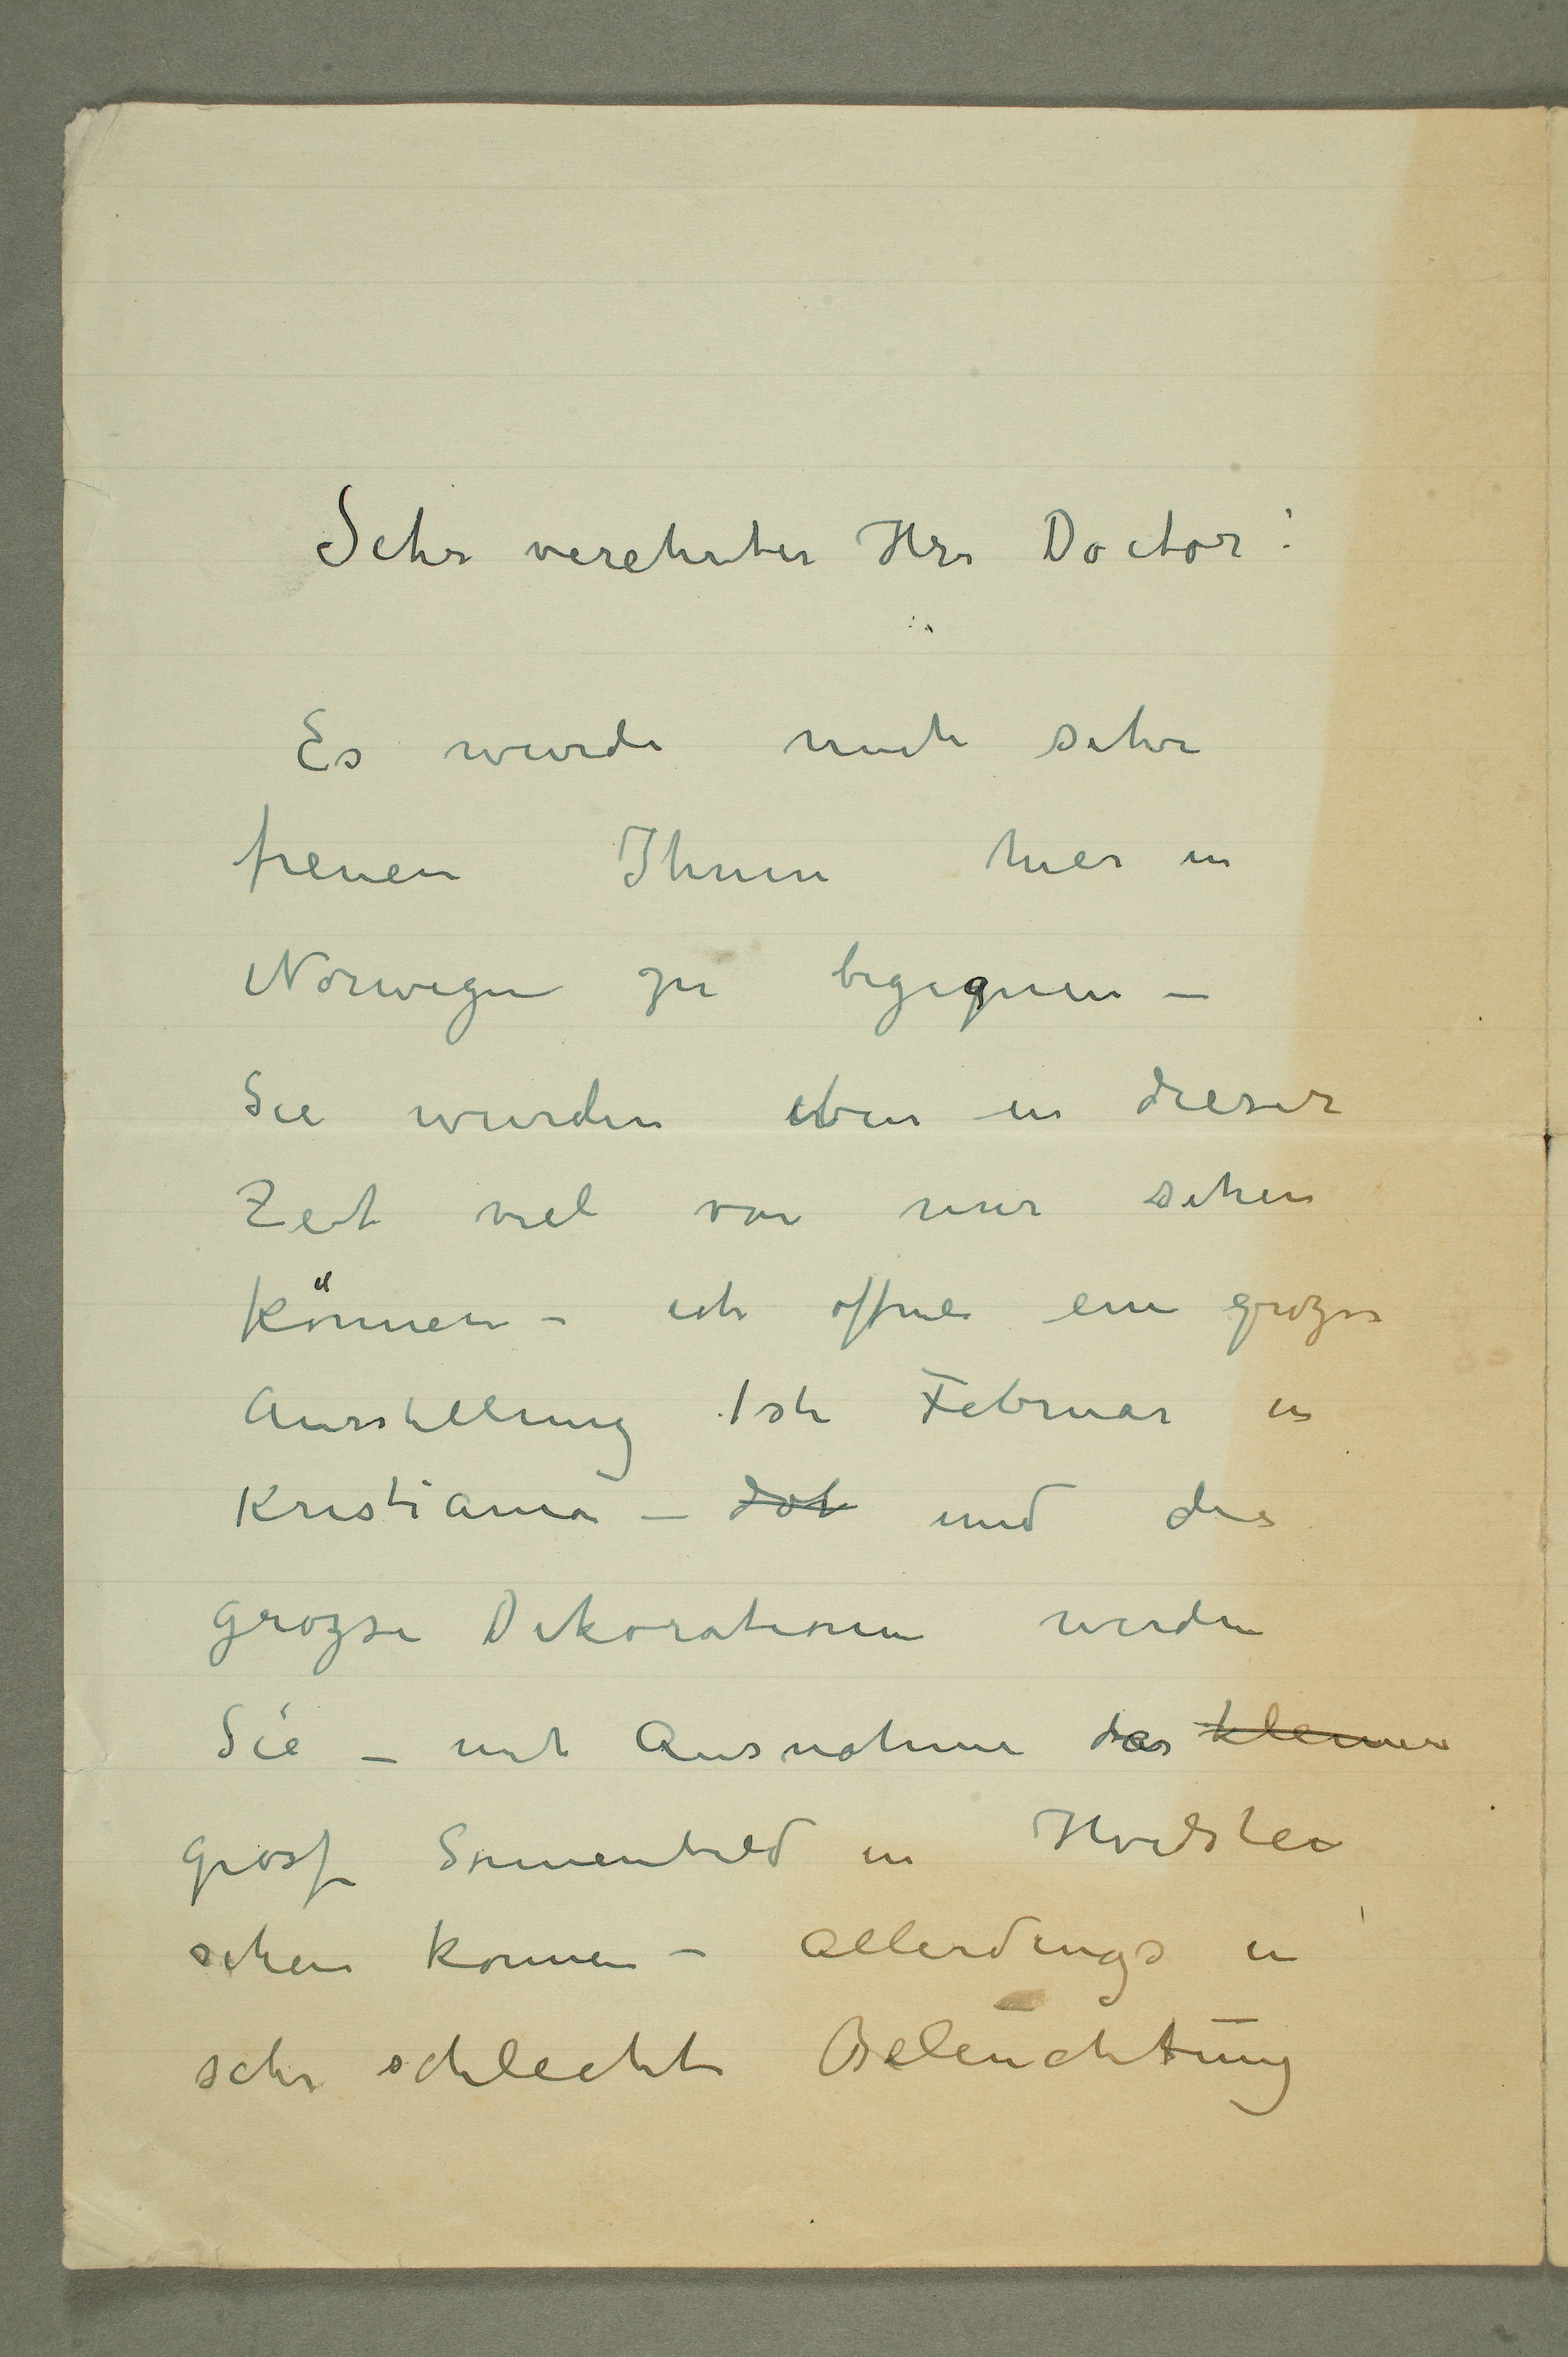 Sehr verehrter Herr Doctor!
Es wurde mich sehr
freuen Ihnen hier in
Norwegen zu begegnen –
Sie wurden eben in dieser
Zeit viel von mir sehen
können – ich öffne ein grozse
Ausstellung 1ste Februar in
Kristiania – dot und die
grozse Dekorationen werden
Sie – mit Ausnahme das kleiner
grosse Sonnenbild in Hvidsten
sehen konnen – allerdings in
sehr schlechte Beleuchtung